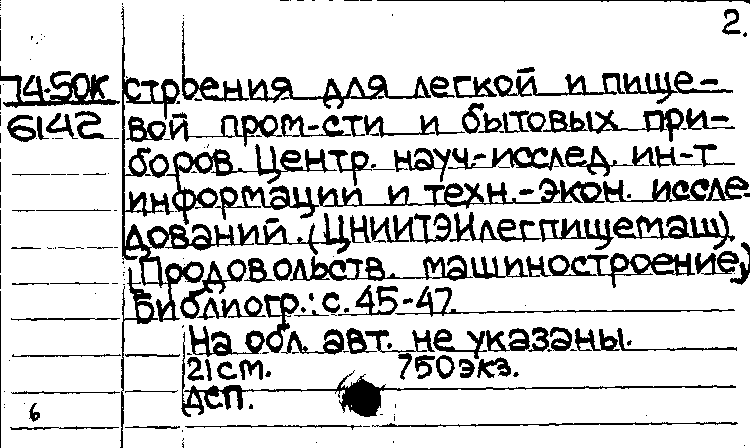 2.
74-50К строения для легкой и пище-
6142 вой пром-сти и бытовых при-
боров. Центр. науч.-исслед. ин-т
информации и техн.-экон. иссле
дований. (ЦНИИТЭИлегпищемаш).
(Продовольств. машиностроение)
Библиогр.: с. 45-47.
На обл. авт. не указаны.
21см. 750экз.
ДСП.
6